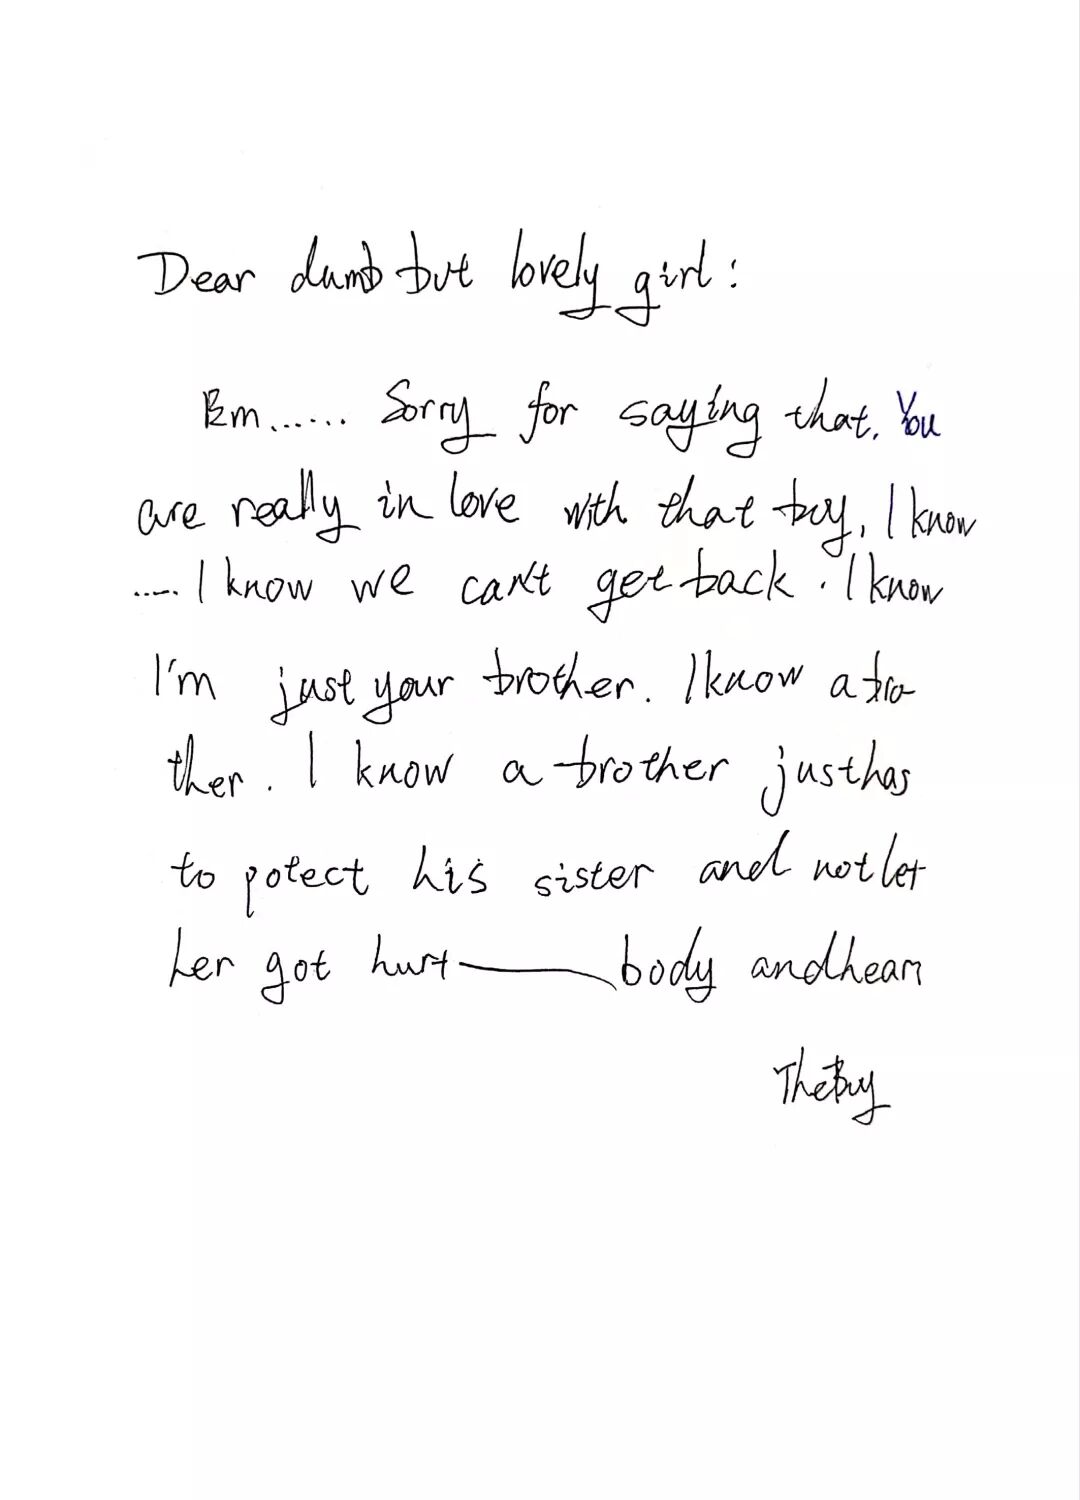 Dear dumb but lovely girl:
Em...... Sorry for saying that. You
are really in love with that boy, I know
..... I know we can't get back. I know
I'm just your brother. I know a bro-
ther. I know a brother just has
to potect his sister and not let
her got hurt——body and heart
The Boy